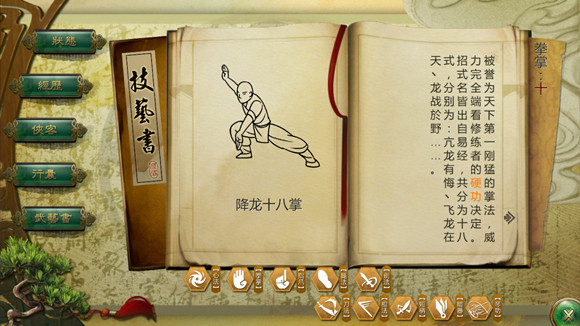 狀態
經歷
俠客
行囊
技藝書
技藝書
降龙十八掌
拳掌：十
被誉为天下第一刚猛的掌法，威
力完全端看修练者的硬功决定。
招式名皆出自易经，共分为十八
式，分别为：亢龙有悔、飞龙在
天、龙战於野……。